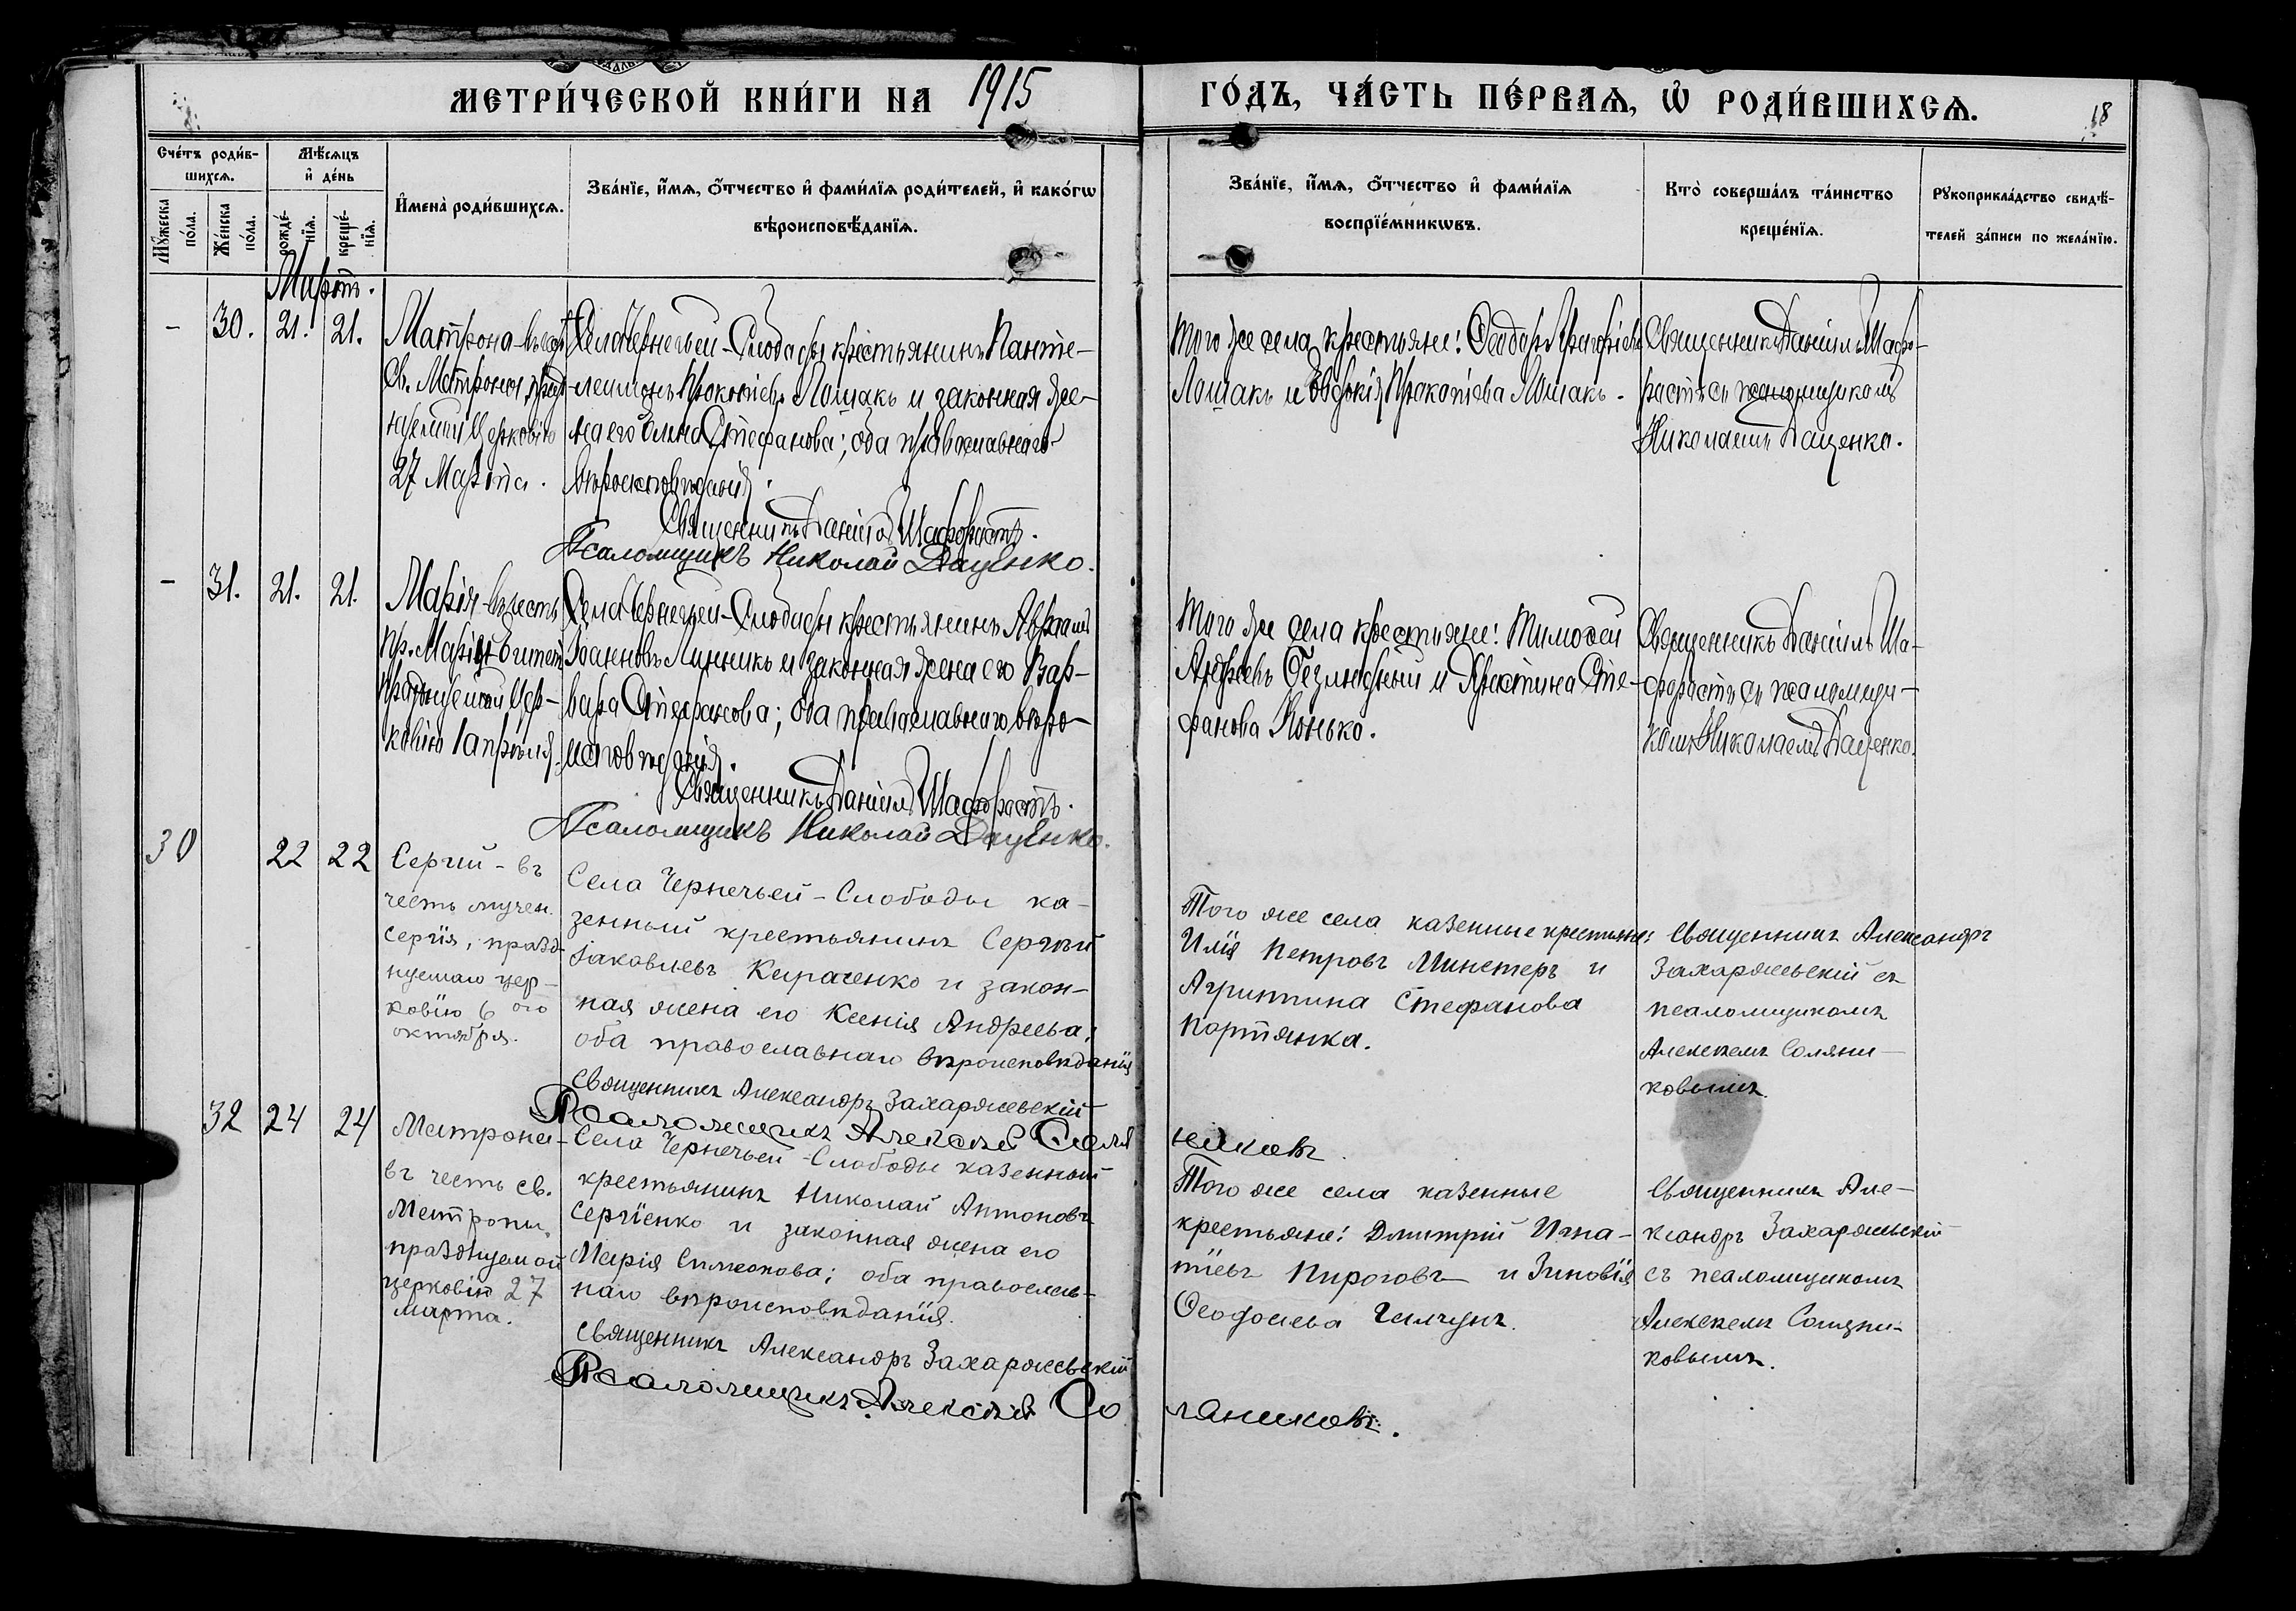 МЕТРИ́ЧЕСКОЙ КНИ́ГИ НА 1915 ГО́ДЪ, ЧА́СТЬ ПЕ́РВАѦ, Ѡ҆ РОДИ́ВШИХСѦ.
18
Сче́тъ роди́в-
шихсѧ.
Мѣ́сѧцъ
и҆ де́нь
И҆мена̀ роди́вшихсѧ.
Зва́нїе, и҆́мѧ, ѻ҆́тчество и҆ фами́лїѧ роди́телей, и҆ како́гѡ
вѣроисповѣ́данїѧ.
Зва́нїе, и҆́мѧ, ѻ҆́тчество и҆ фами́лїѧ
воспрїе́мникѡвъ.
Кто̀ соверша́лъ та́инство
креще́нїѧ.
Рꙋкоприкла́дство свидѣ́-
телей за́писи по жела́нїю.
Мꙋ́жеска
по́ла.
Же́нска
по́ла.
рожде́-
нїѧ.
креще́-
нїѧ.
Мартъ.
- 30. 21. 21.
Матрона-въ честь
Св. Матроны, празд-
нуемой Церковію
27 Марта.
Села Чернечьей-Слободы крестьянинъ Панте-
леимонъ Прокопіевъ Лошакъ и законная же-
на его Елена Стефанова; оба православнаго
вѣроисповѣданія.
Священникъ Даніилъ Шафорастъ.
Псаломщикъ Николай Даценко.
Того же села крестьяне: Ѳеодоръ Григорьевъ
Лошакъ и Евдокія Прокопіева Лошакъ.
Священникъ Даніилъ Шафо-
растъ съ псаломщикомъ
Николаемъ Даценко.
- 31. 21. 21.
Марія-въ честь
пр. Маріи Египет.
празднуемой Цер-
ковію 1 апрѣля.
Села Чернечьей-Слободы крестьянинъ Авраамъ
Іоанновъ Линникъ и законная жена его Вар-
вара Стефанова; оба православнаго вѣро-
исповѣданія.
Священникъ Даніилъ Шафорастъ.
Псаломщикъ Николай Даценко.
Того же села крестьяне: Тимоѳей
Андреевъ и Христина Сте-
фанова Конько.
Священникъ Даніилъ Ша-
форастъ съ псаломщи-
комъ Николаемъ Даценко.
30 22 22
Сергий - въ
честь мучен.
Сергія, празд-
нуемаго цер-
ковію 6 ого
октября.
Села Чернечьей-Слободы ка-
зенный крестьянинъ Сергѣй
Іаковлевъ Кираченко и закон-
ная жена его Ксенія Андреева;
оба православнаго вѣроисповѣданія
Священникъ Александръ Захаржевскій
Псаломщикъ Алексѣй Соля никовъ.
Того же села казенные крестьяне:
Илія Петровъ Минстеръ и
Агрипина Стефанова
Портянка.
Священникъ Александръ
Захаржевскій съ
псаломщикомъ
Алексѣемъ Соляни-
ковымъ.
32 24 24
Матрона-
въ честь св.
Матроны,
празднуемой
церковію 27
марта.
Села Чернечьей-Слободы казенный
крестьянинъ Николай Антоновъ
Сергіенко и законная жена его
Марія Симеонова; оба православ-
наго вѣроисповѣданія.
Священникъ Александръ Захаржевскій
Псаломщикъ Алексѣй Со ляниковъ.
Того же села казенные
крестьяне: Дмитрій Игна-
тіевъ Пироговъ и Зиновія
Ѳеодосіева
Священникъ Але-
ксандръ Захаржевскій
съ псаломщикомъ
Алексѣемъ Соляни-
ковымъ.